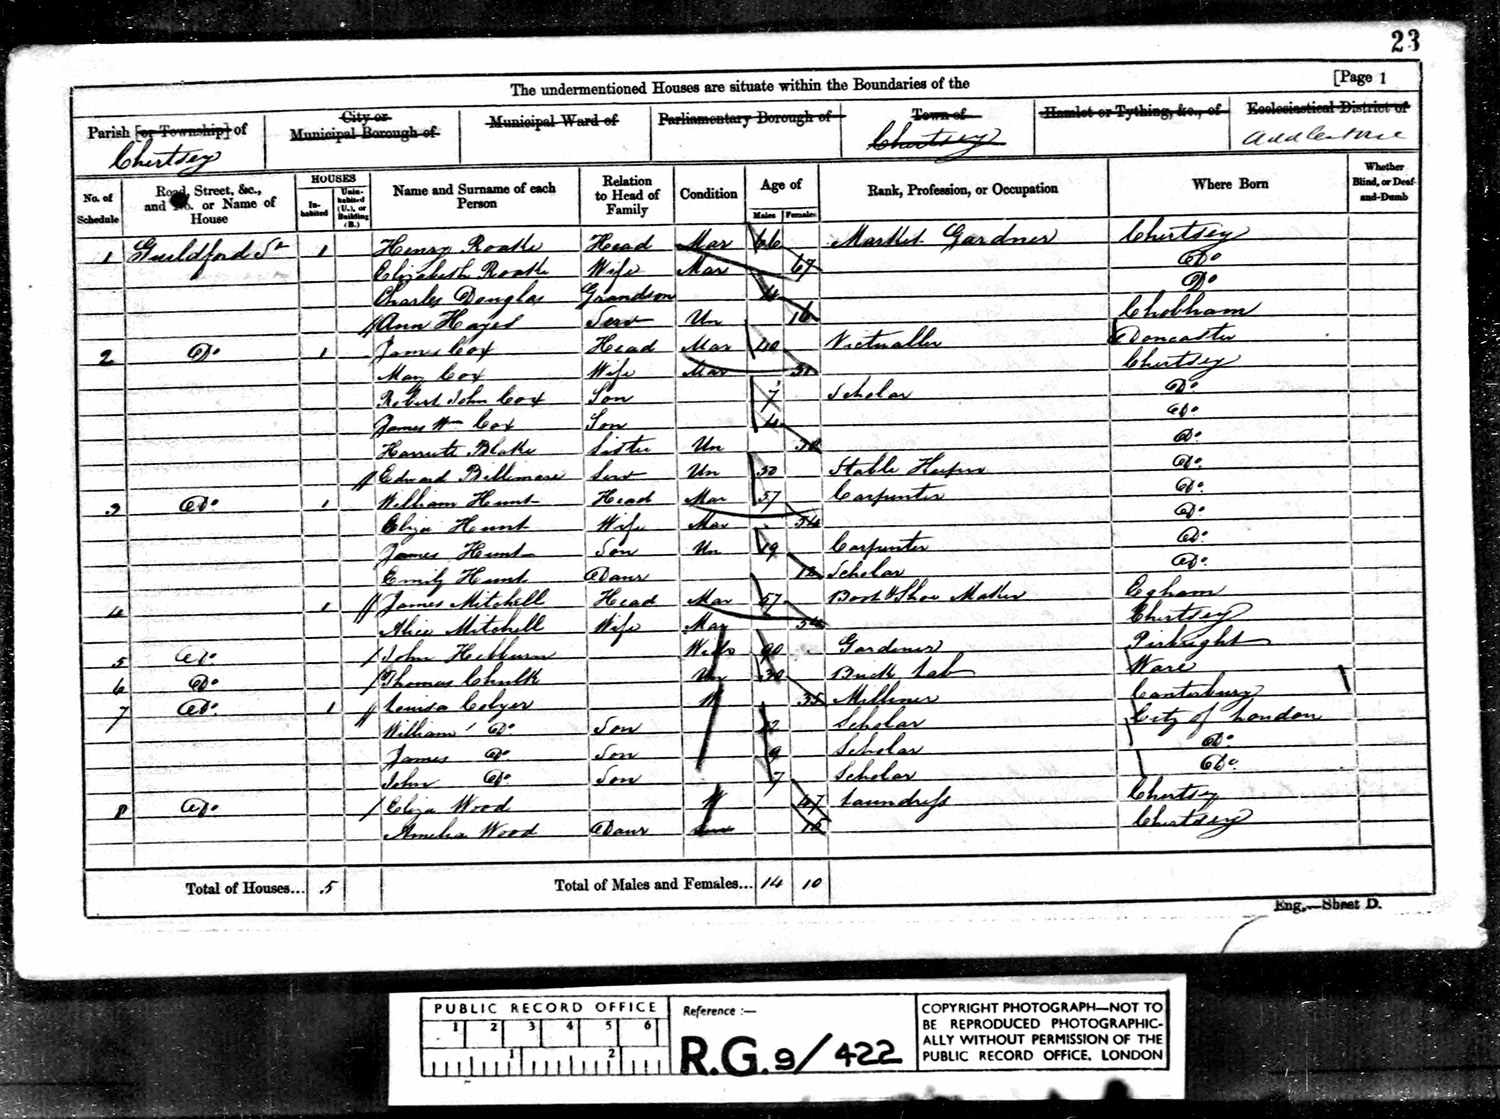 23
The undermentioned Houses are situate within the Boundaries of the [Page 1
Parish [or Township] of City or Municipal Borough of Municipal Ward of Parliamentary Borough of Town of Hamlet or Tything, &c., of Ecclesiastical District of
Chertsey Chertsey Addlestone
No. of Schedule Road, Street, &c., and No. or Name of House HOUSES Inhabited Uninhabited (U.), or Building (B.) Name and Surname of each Person Relation to Head of Family Condition Age of Males Females Rank, Profession, or Occupation Where Born Whether Blind, or Deaf-and-Dumb
1 Guildford St 1 Henry Roake Head Mar 66 Market Gardner Chertsey
Elizabeth Roake Wife Mar 67 Do
Charles Douglas Grandson 4 Do
Ann Hayes Serv Un 16 Chobham
2 Do 1 James Cox Head Mar 40 Victualler Doncaster
Mary Cox Wife Mar Chertsey
Robert John Cox Son 7 Scholar Do
James Wm Cox Son 4 Do
Harriett Blake Sister Un Do
Edward Serv Un 50 Stable Keeper Do
3 Do 1 William Hunt Head Mar 57 Carpenter Do
Eliza Hunt Wife Mar 54 Do
James Hunt Son Un 19 Carpenter Do
Emily Hunt Daur 12 Scholar Do
4 1 James Mitchell Head Mar 57 Boot & Shoe Maker Egham
Alice Mitchell Wife Mar 54 Chertsey
5 Do John Hebburn Wido 90 Gardener Pirbright
6 Do Thomas Chulk Un 30 Brick Lab Ware
7 Do 1 Louisa Colyer W 35 Milliner Canterbury
William Do Son 12 Scholar City of London
James Do Son 9 Scholar Do
John Do Son 7 Scholar Do
8 Do Eliza Wood W 47 Laundress Chertsey
Amelia Wood Daur 15 Chertsey
Total of Houses... 5 Total of Males and Females... 14 10
Eng.—Sheet D.
PUBLIC RECORD OFFICE
1 2 3 4 5 6
1 2
Reference :—
R.G. 9/422
COPYRIGHT PHOTOGRAPH—NOT TO
BE REPRODUCED PHOTOGRAPHIC-
ALLY WITHOUT PERMISSION OF THE
PUBLIC RECORD OFFICE, LONDON